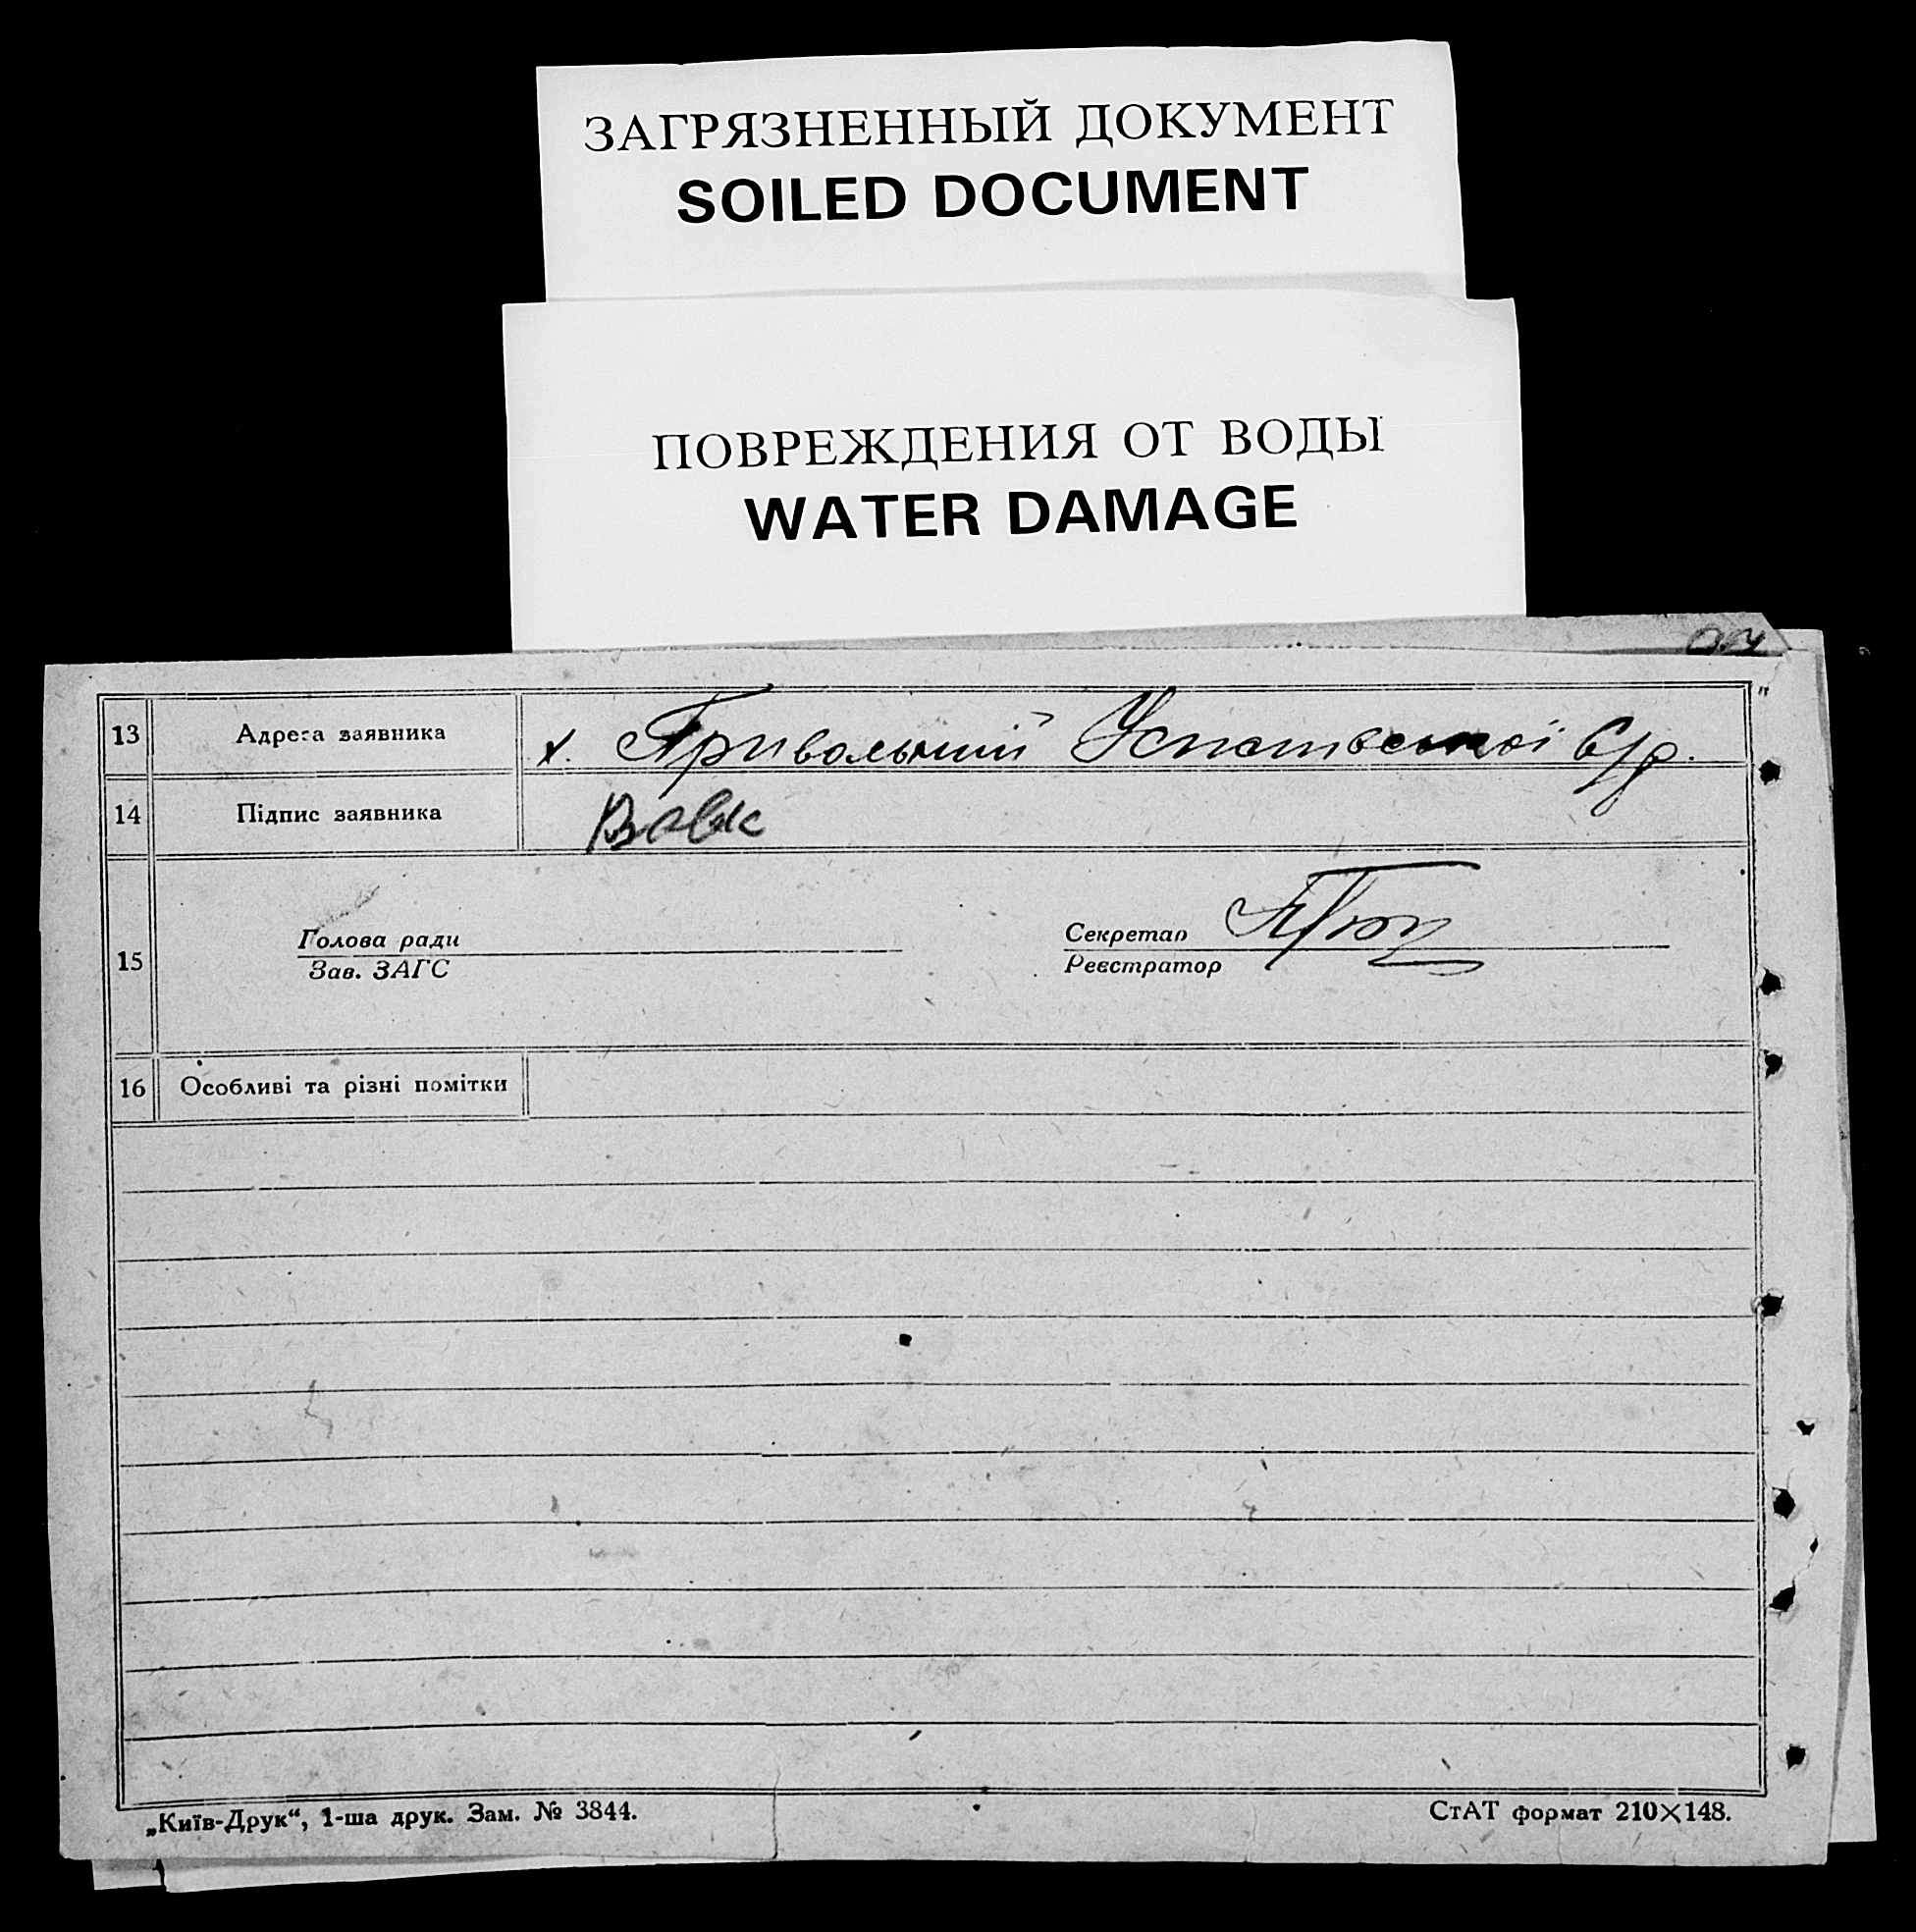 ЗАГРЯЗНЕННЫЙ ДОКУМЕНТ
SOILED DOCUMENT
ПОВРЕЖДЕНИЯ ОТ ВОДЫ
WATER DAMAGE
13 Адреса заявника х. Привольний С/р.
14 Підпис заявника Вовк
Голова ради Секретар
15
Зав. ЗАГС Реєстратор
16 Особливі та різні помітки
„Київ-Друк“, 1-ша друк. Зам. № 3844. СтАТ формат 210×148.